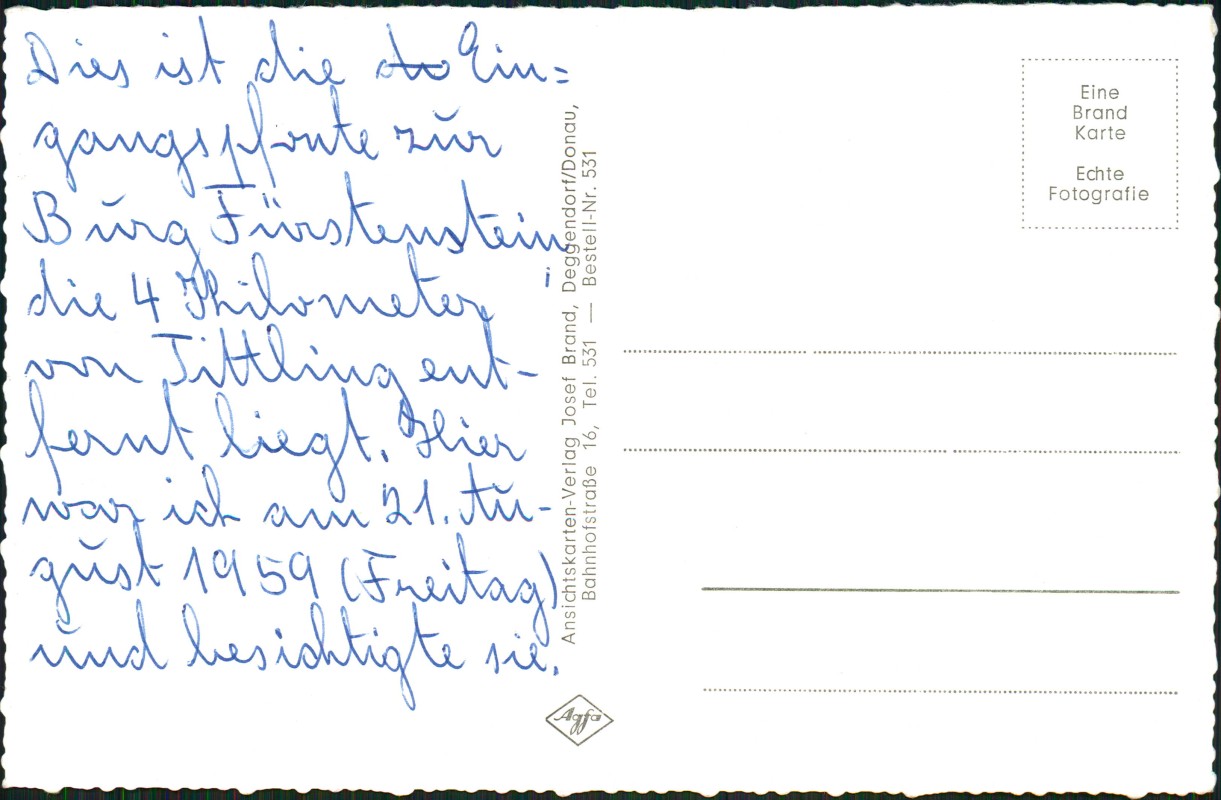 Dies ist die Ein=
gangspforte zur
Burg Fürstenstein,
die 4 Khilometer
von Tittling ent-
fernt liegt. Hier
war ich am 21. Au-
gust 1959 (Freitag)
und besichtigte sie.
Ansichtskarten-Verlag Josef Brand, Deggendorf/Donau,
Bahnhofstraße 16, Tel. 531 — Bestell-Nr. 531
Agfa
Eine
Brand
Karte
Echte
Fotografie